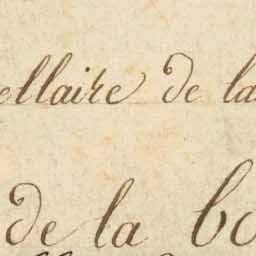 ellaire de la
de la bo